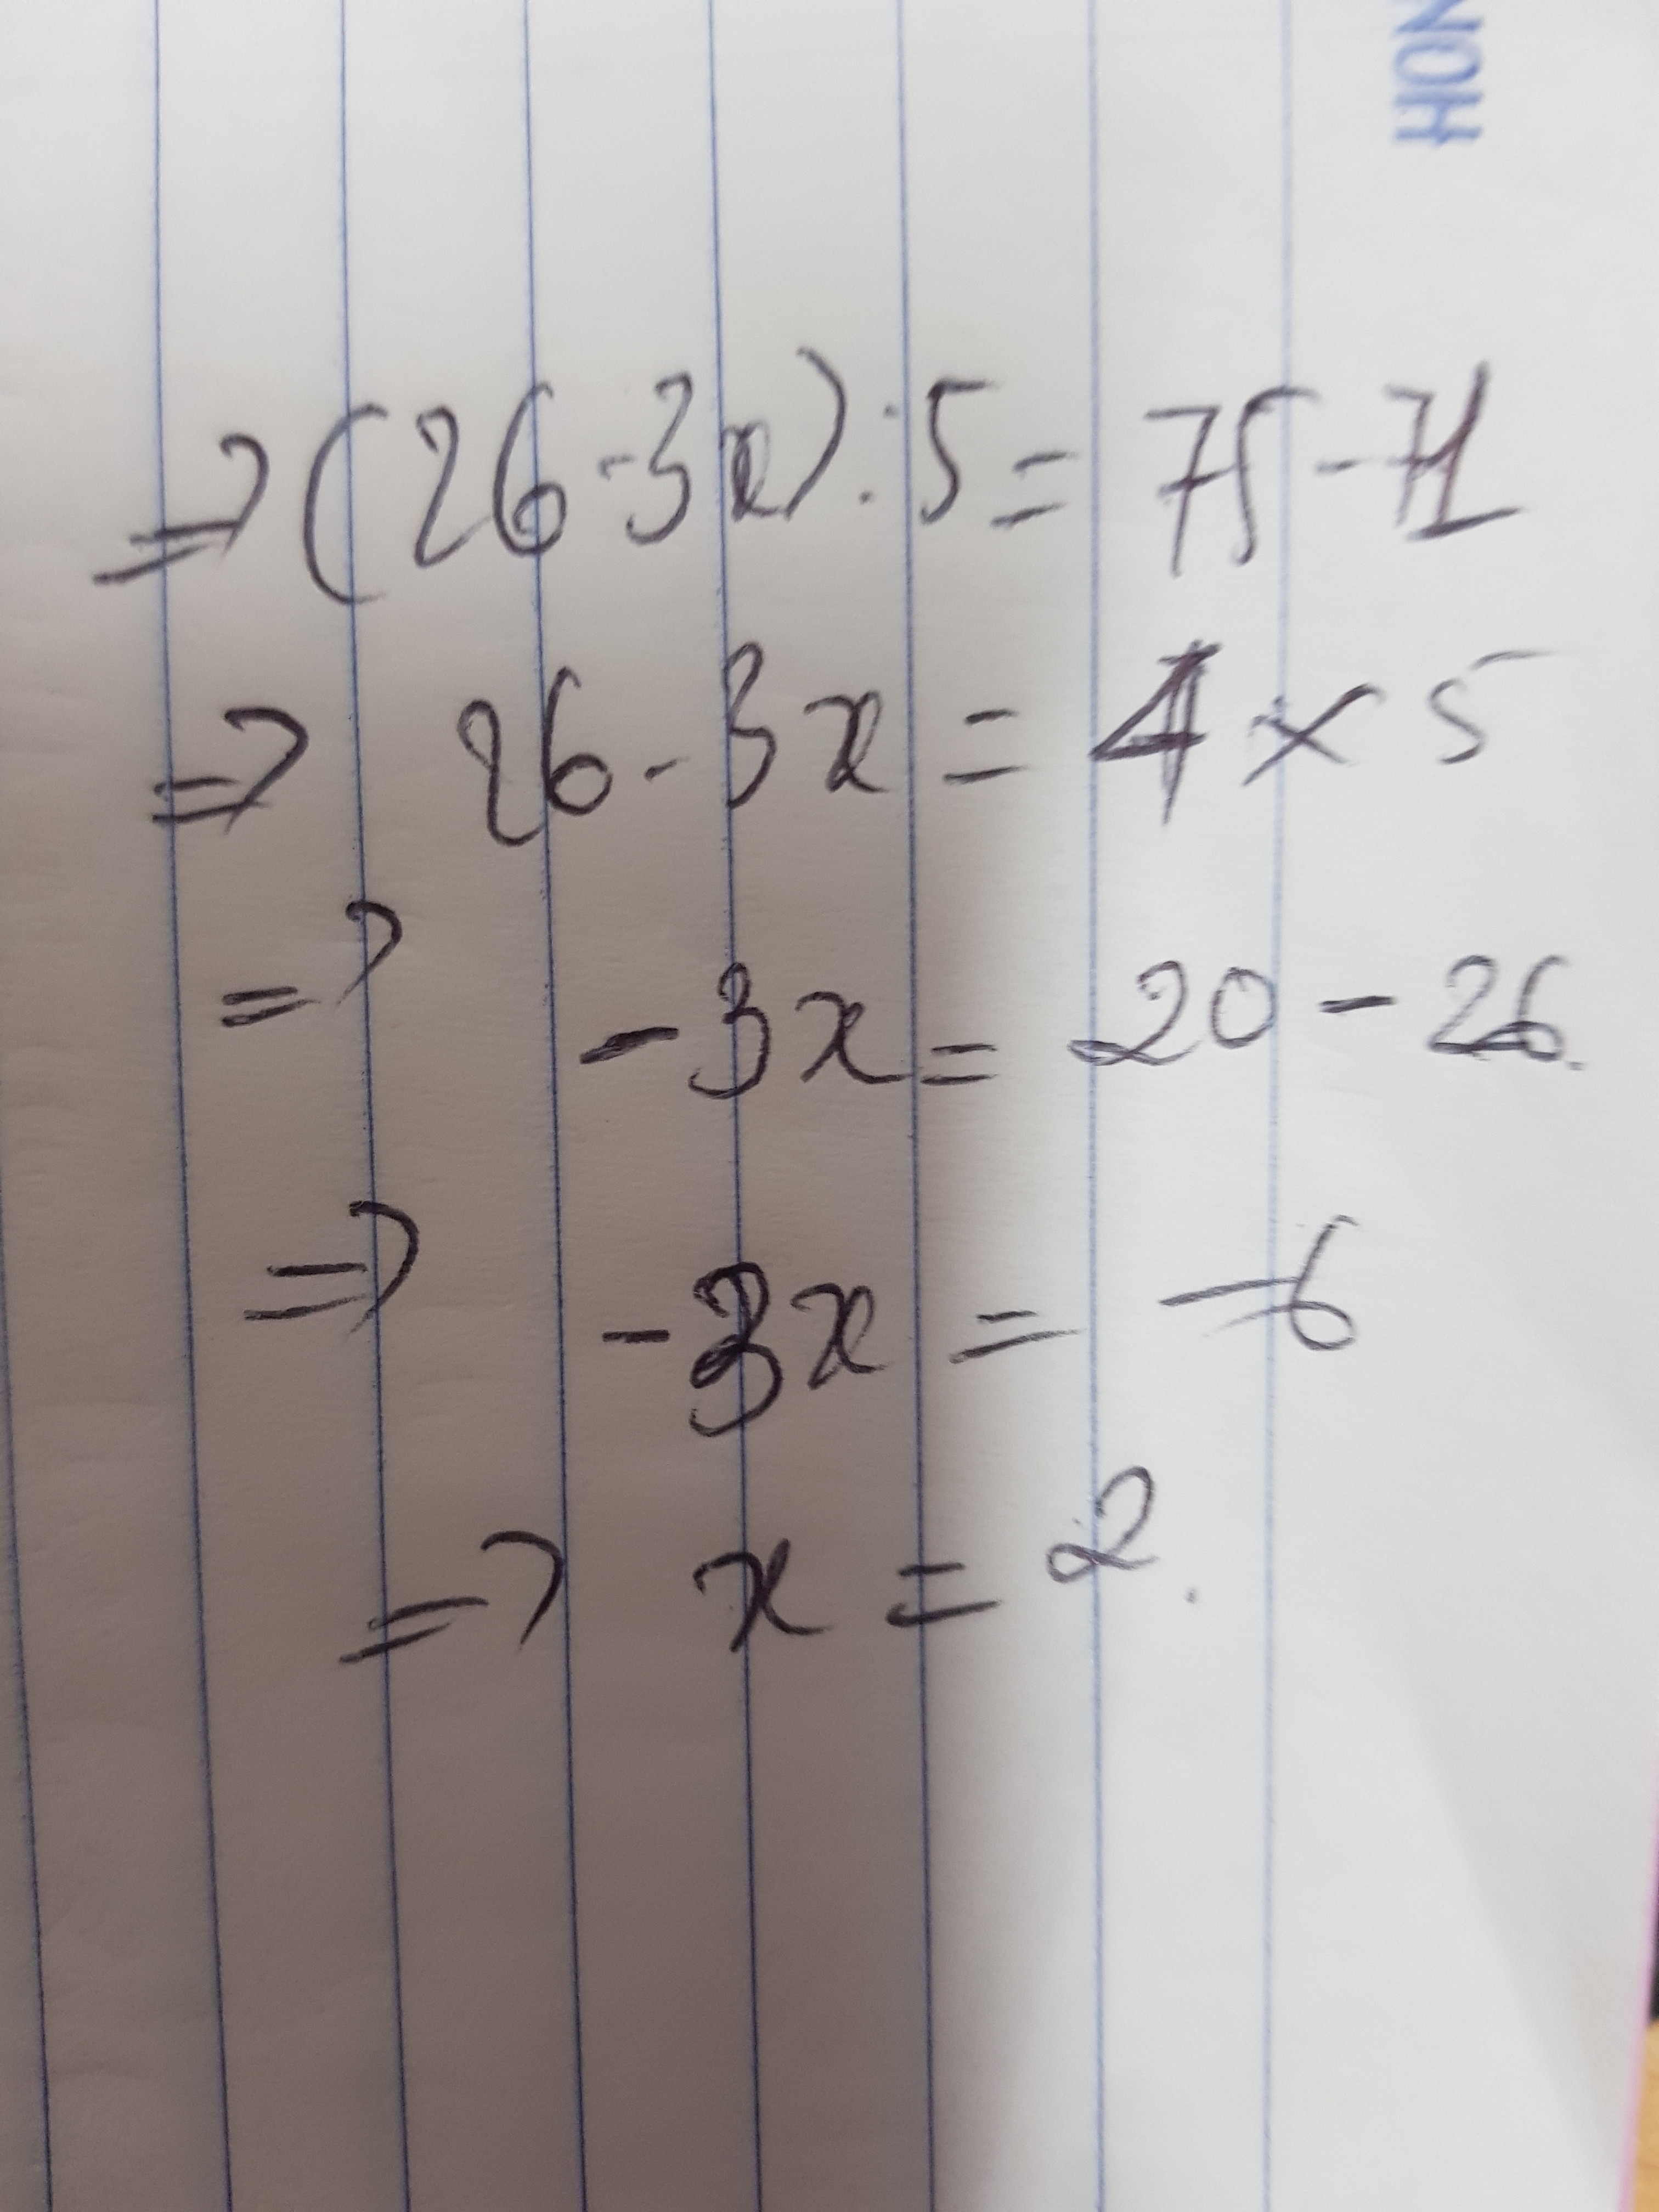 NOH
=> (26-3x):5 = 75-71
=> 26-3x = 4 x 5
=> -3x = 20 - 26.
=> -3x = -6
=> x = 2.